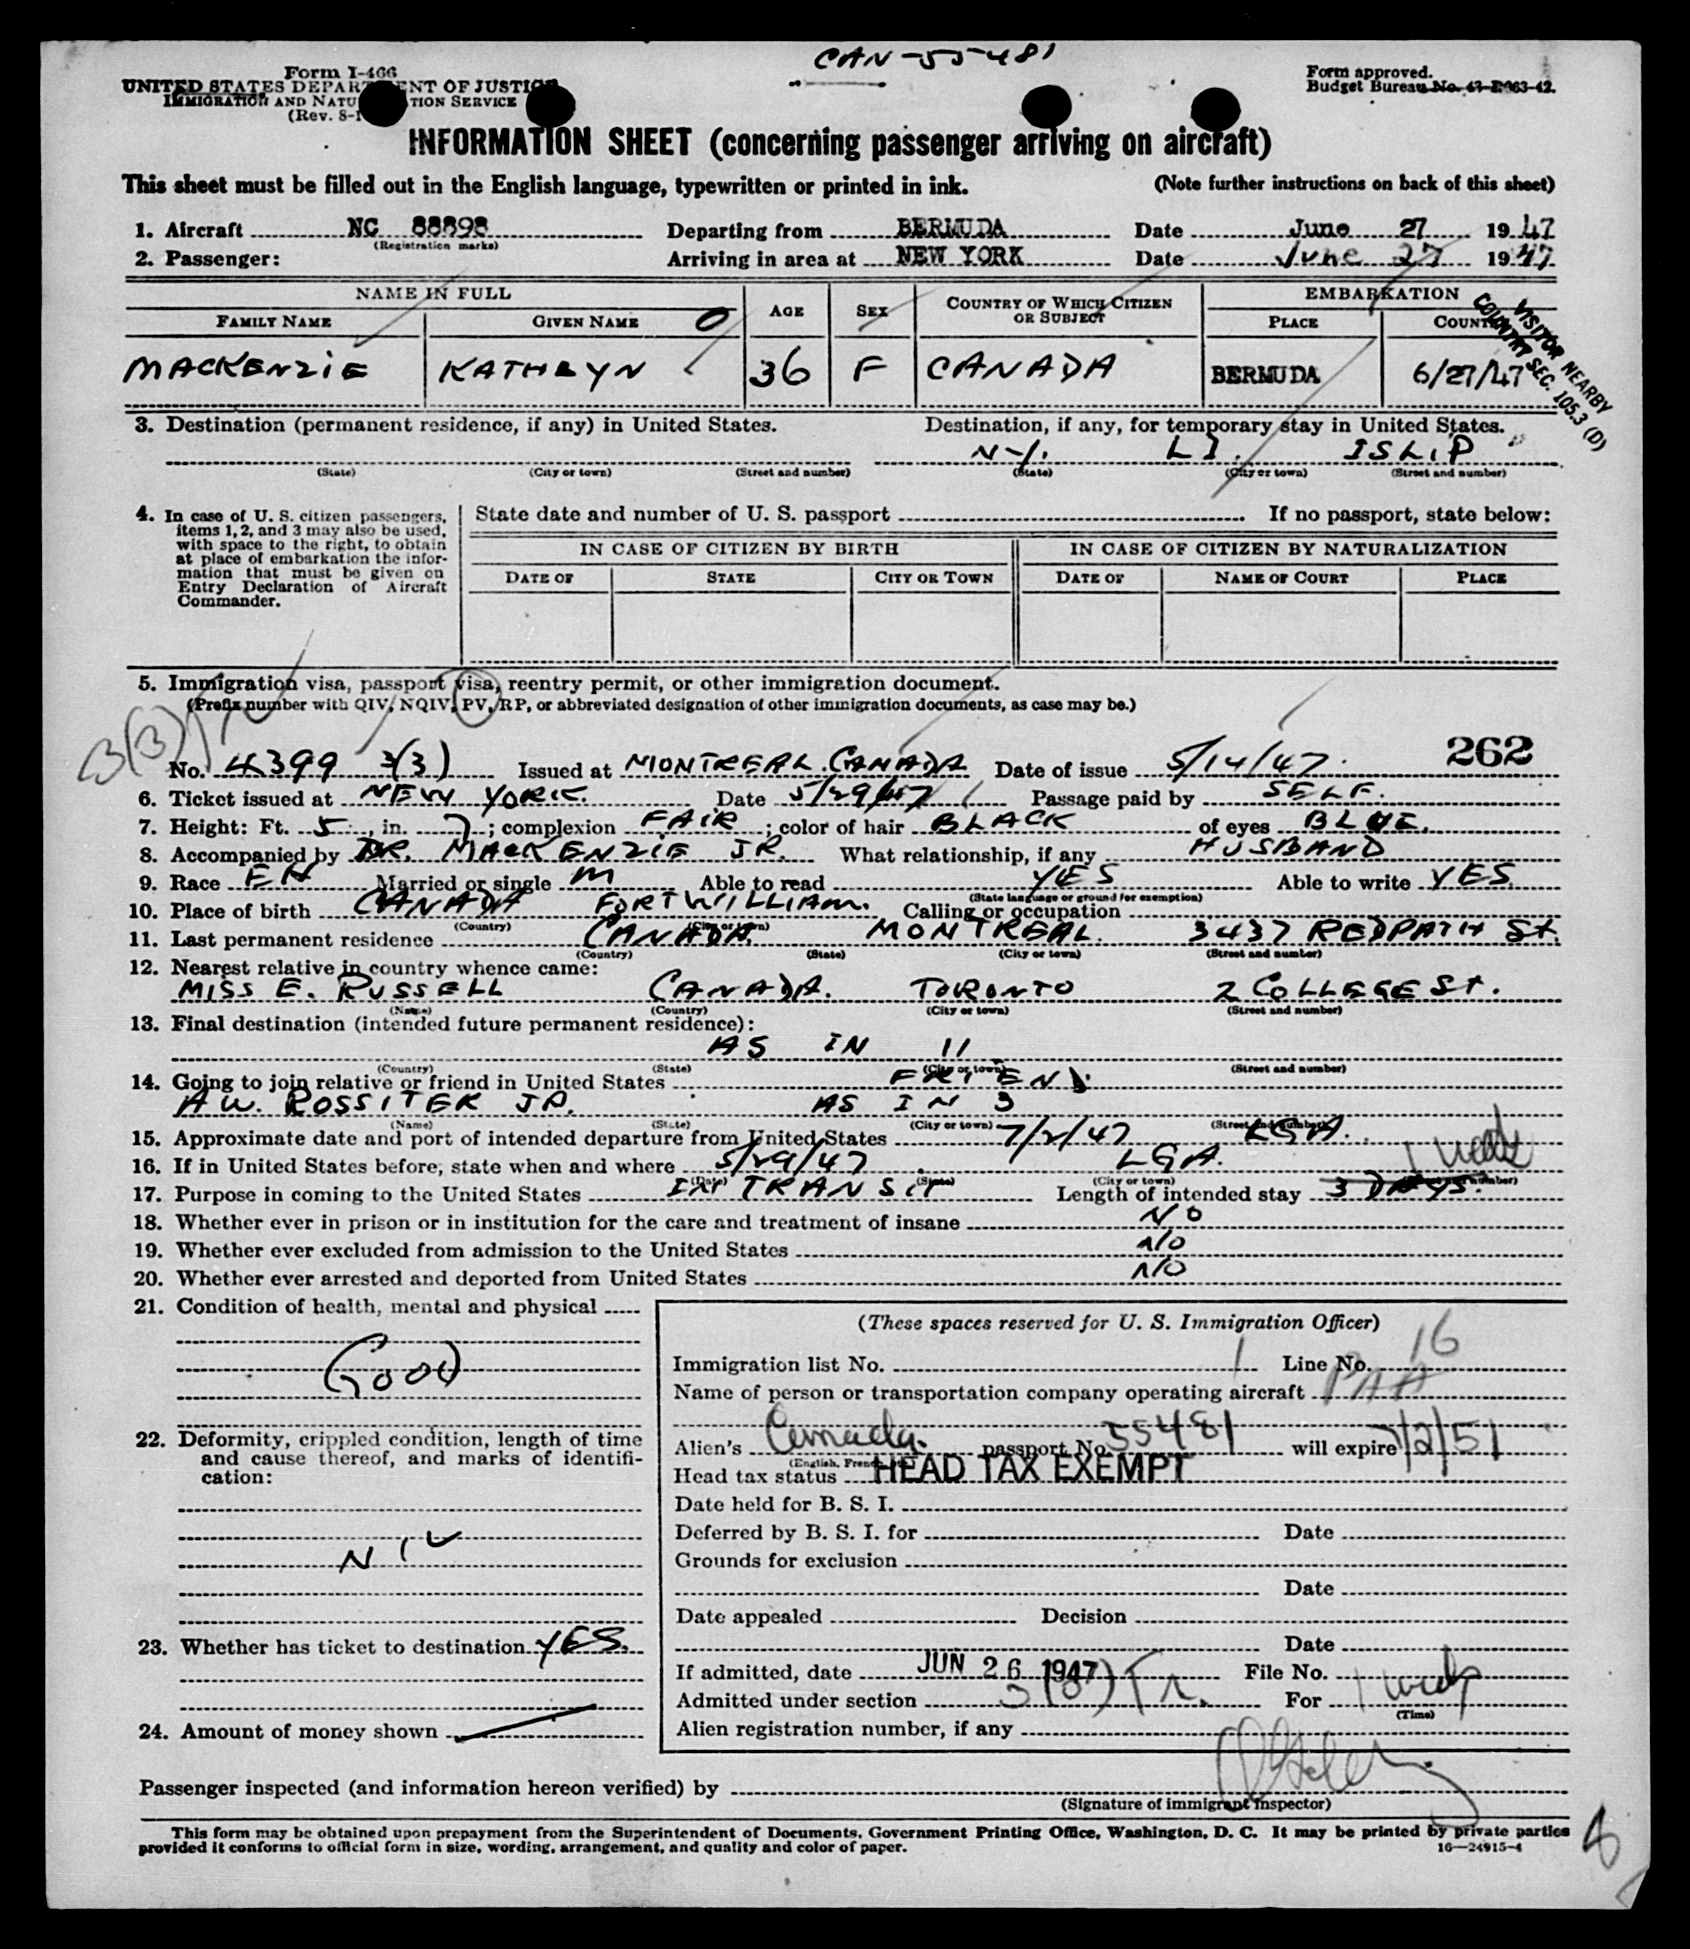 CAN-55481
Form I-466
UNITED STATES DEPARTMENT OF JUSTICE
IMMIGRATION AND NATURALIZATION SERVICE
(Rev. 8-1
Form approved.
Budget Bureau No. 43-R063-42.
INFORMATION SHEET (concerning passenger arriving on aircraft)
This sheet must be filled out in the English language, typewritten or printed in ink.
(Note further instructions on back of this sheet)
1. Aircraft NC 88898 Departing from BERMUDA Date June 27 1947
(Registration marks)
2. Passenger: Arriving in area at NEW YORK Date June 27 1947
NAME IN FULL AGE SEX COUNTRY OF WHICH CITIZEN OR SUBJECT EMBARKATION
FAMILY NAME GIVEN NAME PLACE COUNTRY
VISITOR NEARBY
COUNTRY SEC. 105.3 (D)
MACKENZIE KATHRYN 36 F CANADA BERMUDA 6/27/47
3. Destination (permanent residence, if any) in United States. Destination, if any, for temporary stay in United States.
N-Y. L I. ISLIP
(State) (City or town) (Street and number) (State) (City or town) (Street and number)
4. In case of U. S. citizen passengers,
items 1, 2, and 3 may also be used,
with space to the right, to obtain
at place of embarkation the infor-
mation that must be given on
Entry Declaration of Aircraft
Commander.
State date and number of U. S. passport If no passport, state below:
IN CASE OF CITIZEN BY BIRTH IN CASE OF CITIZEN BY NATURALIZATION
DATE OF STATE CITY OR TOWN DATE OF NAME OF COURT PLACE
5. Immigration visa, passport visa, reentry permit, or other immigration document.
(Prefix number with QIV, NQIV, PV, RP, or abbreviated designation of other immigration documents, as case may be.)
3(3)
262
No. 4399 3(3) Issued at MONTREAL. CANADA Date of issue 5/14/47.
6. Ticket issued at NEW YORK. Date 5/29/47 Passage paid by SELF.
7. Height: Ft. 5, in. 7; complexion FAIR; color of hair BLACK of eyes BLUE.
8. Accompanied by DR. MACKENZIE JR. What relationship, if any HUSBAND
9. Race EN Married or single M Able to read YES Able to write YES
(State language or ground for exemption)
10. Place of birth CANADA FORT WILLIAM. Calling or occupation
(Country) (City or town)
11. Last permanent residence CANADA. MONTREAL. 3437 REDPATH St.
(Country) (State) (City or town) (Street and number)
12. Nearest relative in country whence came:
MISS E. RUSSELL CANADA. TORONTO 2 COLLEGE St.
(Name) (Country) (City or town) (Street and number)
13. Final destination (intended future permanent residence):
AS IN 11
(Country) (State) (City or town) (Street and number)
14. Going to join relative or friend in United States FRIEND
A W. ROSSITER JR. AS IN 3
(Name) (State) (City or town) (Street and number)
15. Approximate date and port of intended departure from United States 7/2/47 LGA.
16. If in United States before, state when and where 5/29/47 LGA.
(Date) (State) (City or town) (Street and number)
1 week
17. Purpose in coming to the United States IN TRANSIT Length of intended stay 3 DAYS.
18. Whether ever in prison or in institution for the care and treatment of insane NO
19. Whether ever excluded from admission to the United States NO
20. Whether ever arrested and deported from United States NO
21. Condition of health, mental and physical
Good
22. Deformity, crippled condition, length of time
and cause thereof, and marks of identifi-
cation:
NIL
23. Whether has ticket to destination YES.
24. Amount of money shown
(These spaces reserved for U. S. Immigration Officer)
Immigration list No. 1 Line No. 16
Name of person or transportation company operating aircraft PAA
Alien's Canada. passport No. 55481 will expire 7/2/51
(English, French, etc.)
Head tax status HEAD TAX EXEMPT
Date held for B. S. I.
Deferred by B. S. I. for Date
Grounds for exclusion
Date
Date appealed Decision
Date
If admitted, date JUN 26 1947 File No.
Admitted under section 3(3) Tr. For 1 week
(Time)
Alien registration number, if any
Passenger inspected (and information hereon verified) by
(Signature of immigrant inspector)
This form may be obtained upon prepayment from the Superintendent of Documents, Government Printing Office, Washington, D. C. It may be printed by private parties
provided it conforms to official form in size, wording, arrangement, and quality and color of paper.
16—24915-4